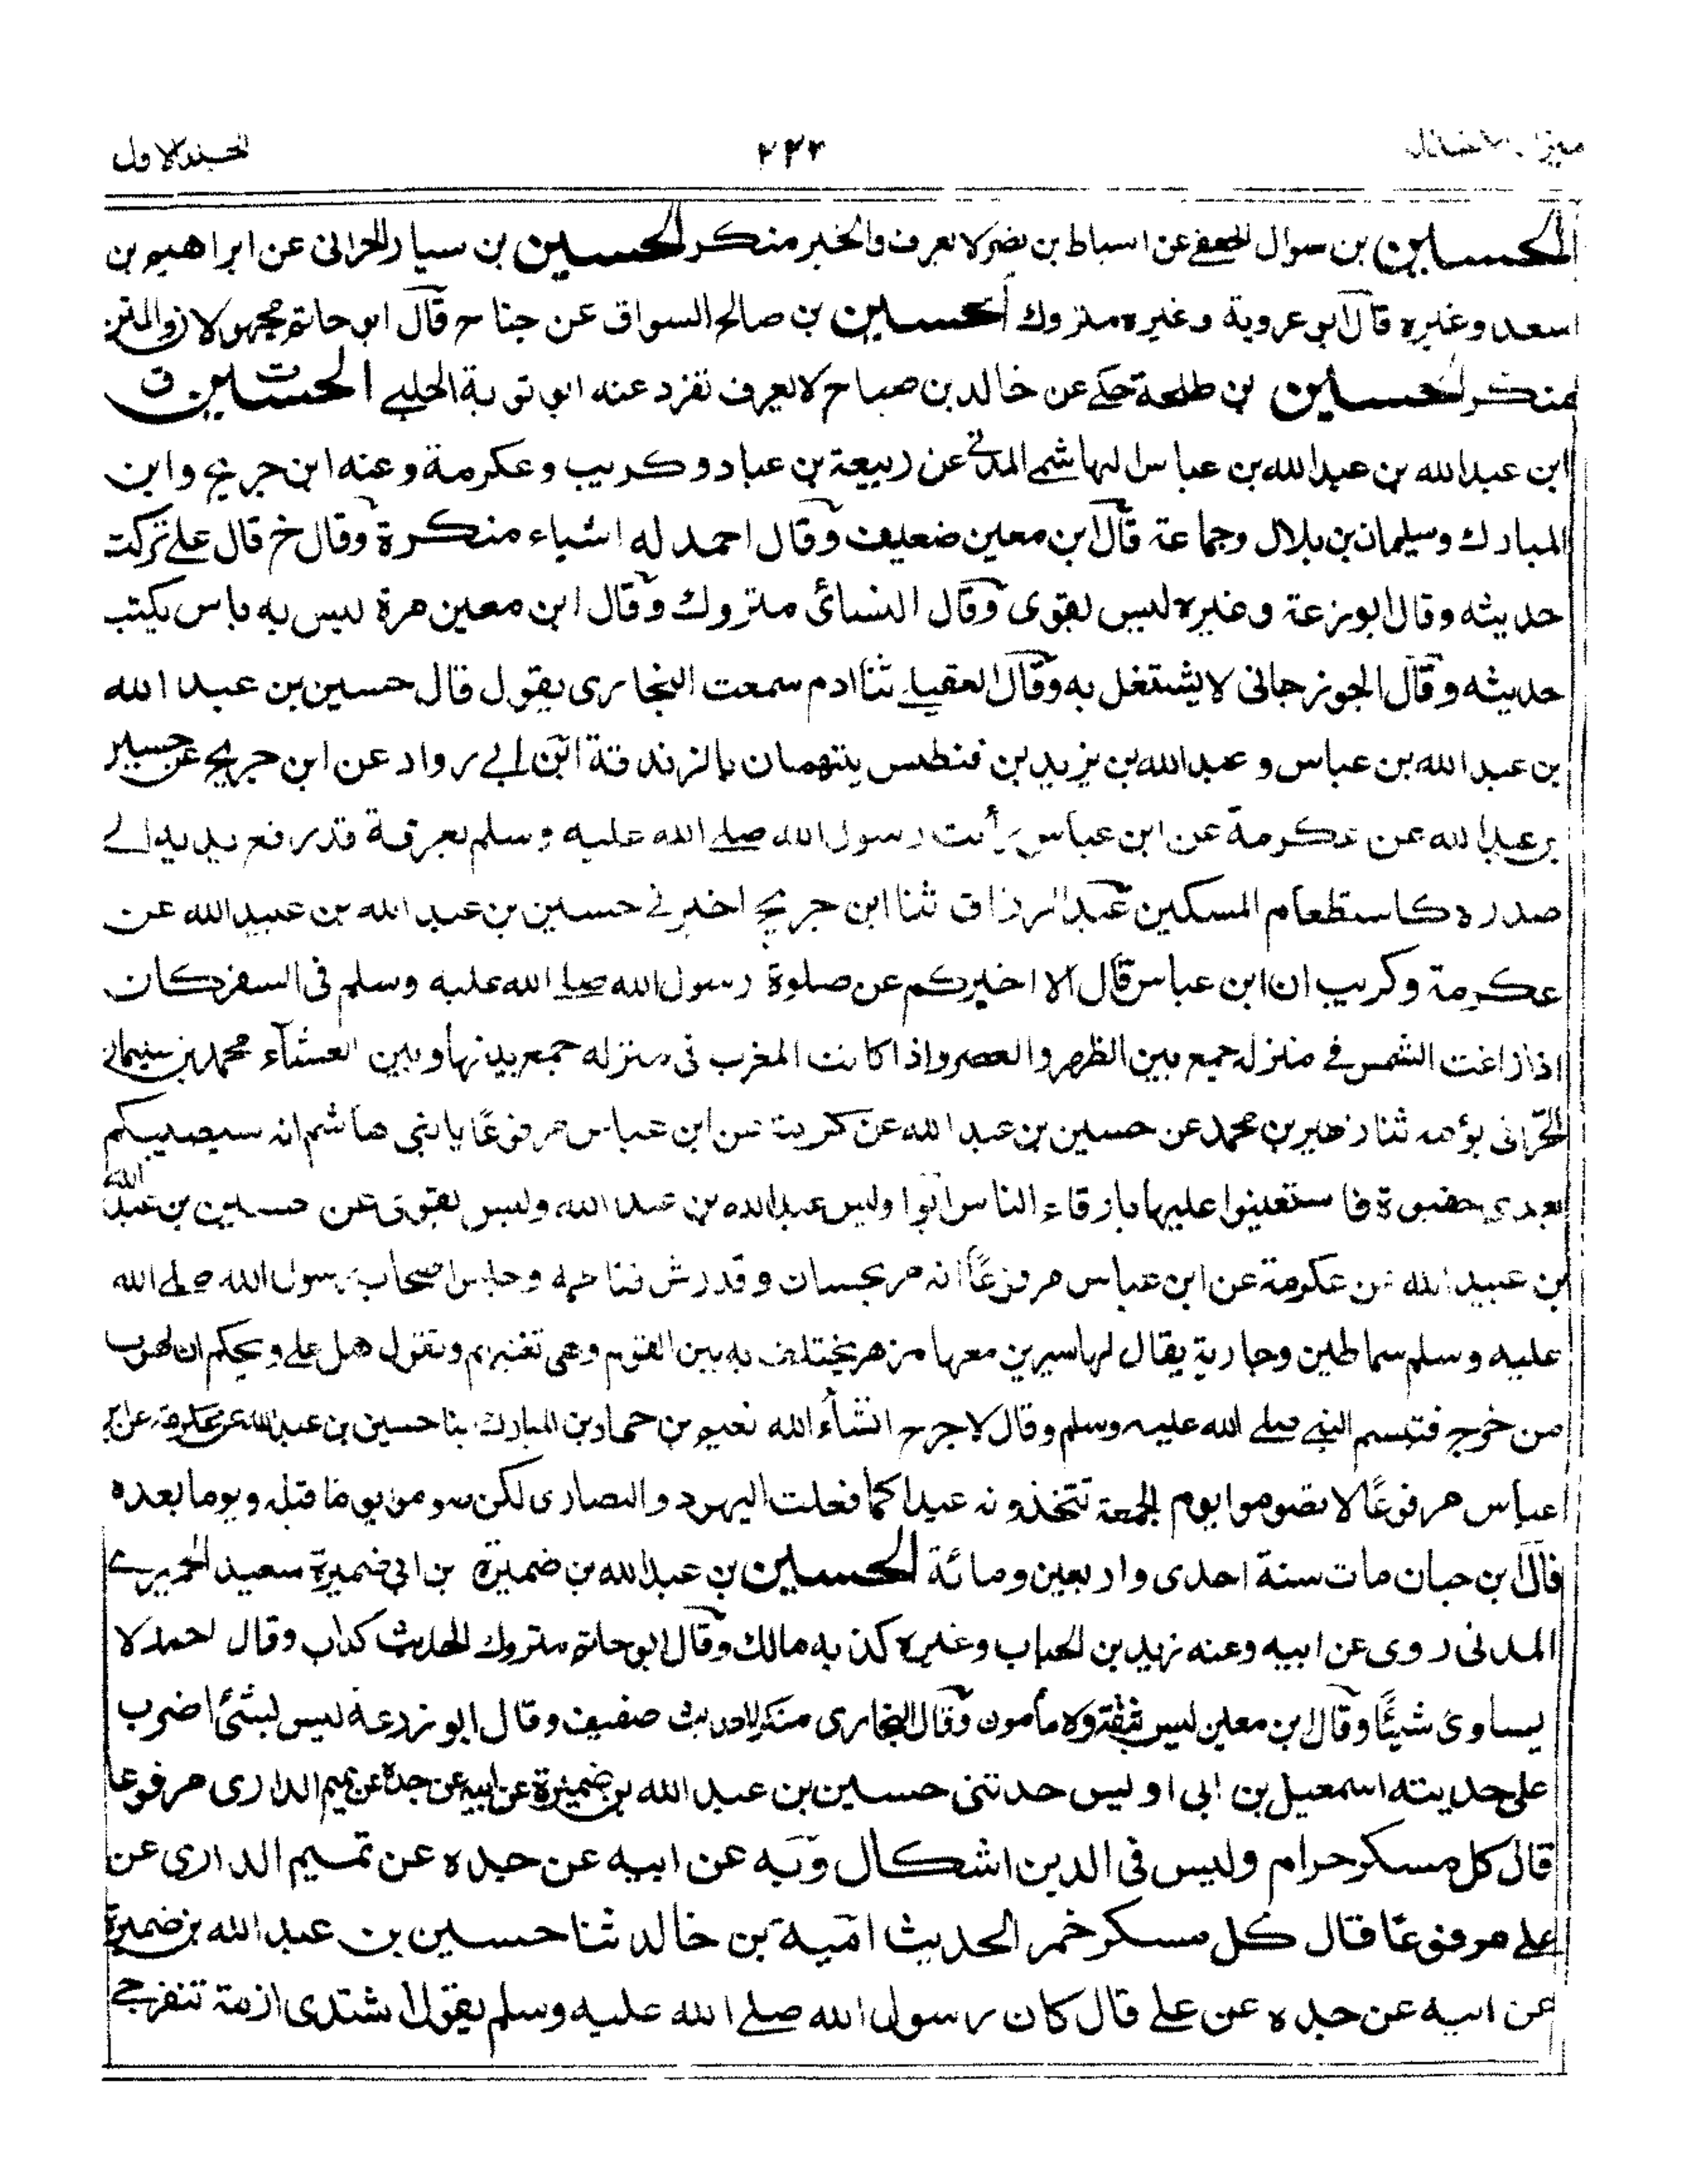 الجلد الاول
۲۴۳
ميزان الاعتدال
الحسين بن سوال الجعفے عن اسباط بن نضر لا يعرف والخبر منكر الحسين بن سيار الحرانى عن ابراهيم بن
سعد وغيره قال ابو عروبة وغيره متروك الحسين بن صالح السواق عن جناح قال ابو حاتم مجهولان والمتن
منكر الحسين بن طلحة حكے عن خالد بن صباح لا يعرف تفرد عنه ابو توبة الحلبے الحسين ت ق
ابن عبد الله بن عبيد الله بن عباس الهاشمے المدنے عن ربيعة بن عباد وكريب وعكرمة وعنه ابن جريج وابن
المبارك وسليمان بن بلال وجماعة قال ابن معين ضعيف وقال احمد له اشياء منكرة وقال خ قال علے تركت
حديثه وقال ابو زرعة وغيره ليس بقوى وقال النسائى متروك وقال ابن معين مرة ليس به باس يكتب
حديثه وقال الجوزجانى لا يشتغل به وقال العقيلے ثنا ادم سمعت البخارى يقول قال حسين بن عبد الله
بن عبد الله بن عباس و عبد الله بن يزيد بن فنطس يتهمان بالزندقة ابن ابے رواد عن ابن جريج عن حسين
بن عبد الله عن عكرمة عن ابن عباس رأيت رسول الله صلے الله عليه وسلم بعرفة قد رفع يديه الے
صدره كاستطعام المسكين عبد الرزاق ثنا ابن جريج اخبرنے حسين بن عبد الله بن عبيد الله عن
عكرمة وكريب ان ابن عباس قال الا اخبركم عن صلوة رسول الله صلے الله عليه وسلم فى السفر كان
اذا زاغت الشمس فے منزله جمع بين الظهر والعصر واذا كانت المغرب فى منزله جمع بينها وبين العشآء محمد بن سليمان
الحرانى بومه ثنا زهير بن محمد عن حسين بن عبد الله عن كريب عن ابن عباس مرفوعًا يا بنى هاشم انه سيصيبكم
بعدى جفوة فاستعينوا عليها بارقاء الناس ابو اويس عبد الله بن عبد الله وليس بقوى عن حسين بن عبد الله
بن عبيد الله عن عكرمة عن ابن عباس مرفوعًا انه مر بحسان وقد رش فناءه وجلس اصحاب رسول الله صلے الله
عليه وسلم سماطين وجارية يقال لها سيرين معها مزهر يختلف به بين القوم وهى تغنيهم وتقول هل علے ويحكم ان لهوت
من حرج فتبسم النبے صلے الله عليه وسلم وقال لا حرج انشأء الله نعيم بن حماد بن المبارك ثنا حسين بن عبد الله عن عكرمة عن ابن
عباس مرفوعًا لا تصوموا يوم الجمعة تتخذونه عيدا كما فعلت اليهود والنصارى لكن صوموا يوما قبله ويوما بعده
قال ابن حبان مات سنة احدى واربعين ومائة الحسين بن عبد الله بن ضميرة بن ابى ضميرة سعيد الحميرے
المدنى روى عن ابيه وعنه زيد بن الحباب وغيره كذبه مالك وقال ابو حاتم متروك الحديث كذاب وقال احمد لا
يساوى شيئًا وقال ابن معين ليس بثقة ولا مأمون وقال البخارى منكر الحديث ضعيف وقال ابو زرعة ليس بشئ اضرب
على حديثه اسمعيل بن ابى اويس حدثنى حسين بن عبد الله بن ضميرة عن ابيه عن جده عن تميم الدارى مرفوعا
قال كل مسكر حرام وليس فى الدين اشكال وبه عن ابيه عن جده عن تميم الدارى عن
علے مرفوعًا قال كل مسكر خمر الحديث امية بن خالد ثنا حسين بن عبد الله بن ضميرة
عن ابيه عن جده عن علے قال كان رسول الله صلے الله عليه وسلم يقول اشتدى ازمة تنفرجے